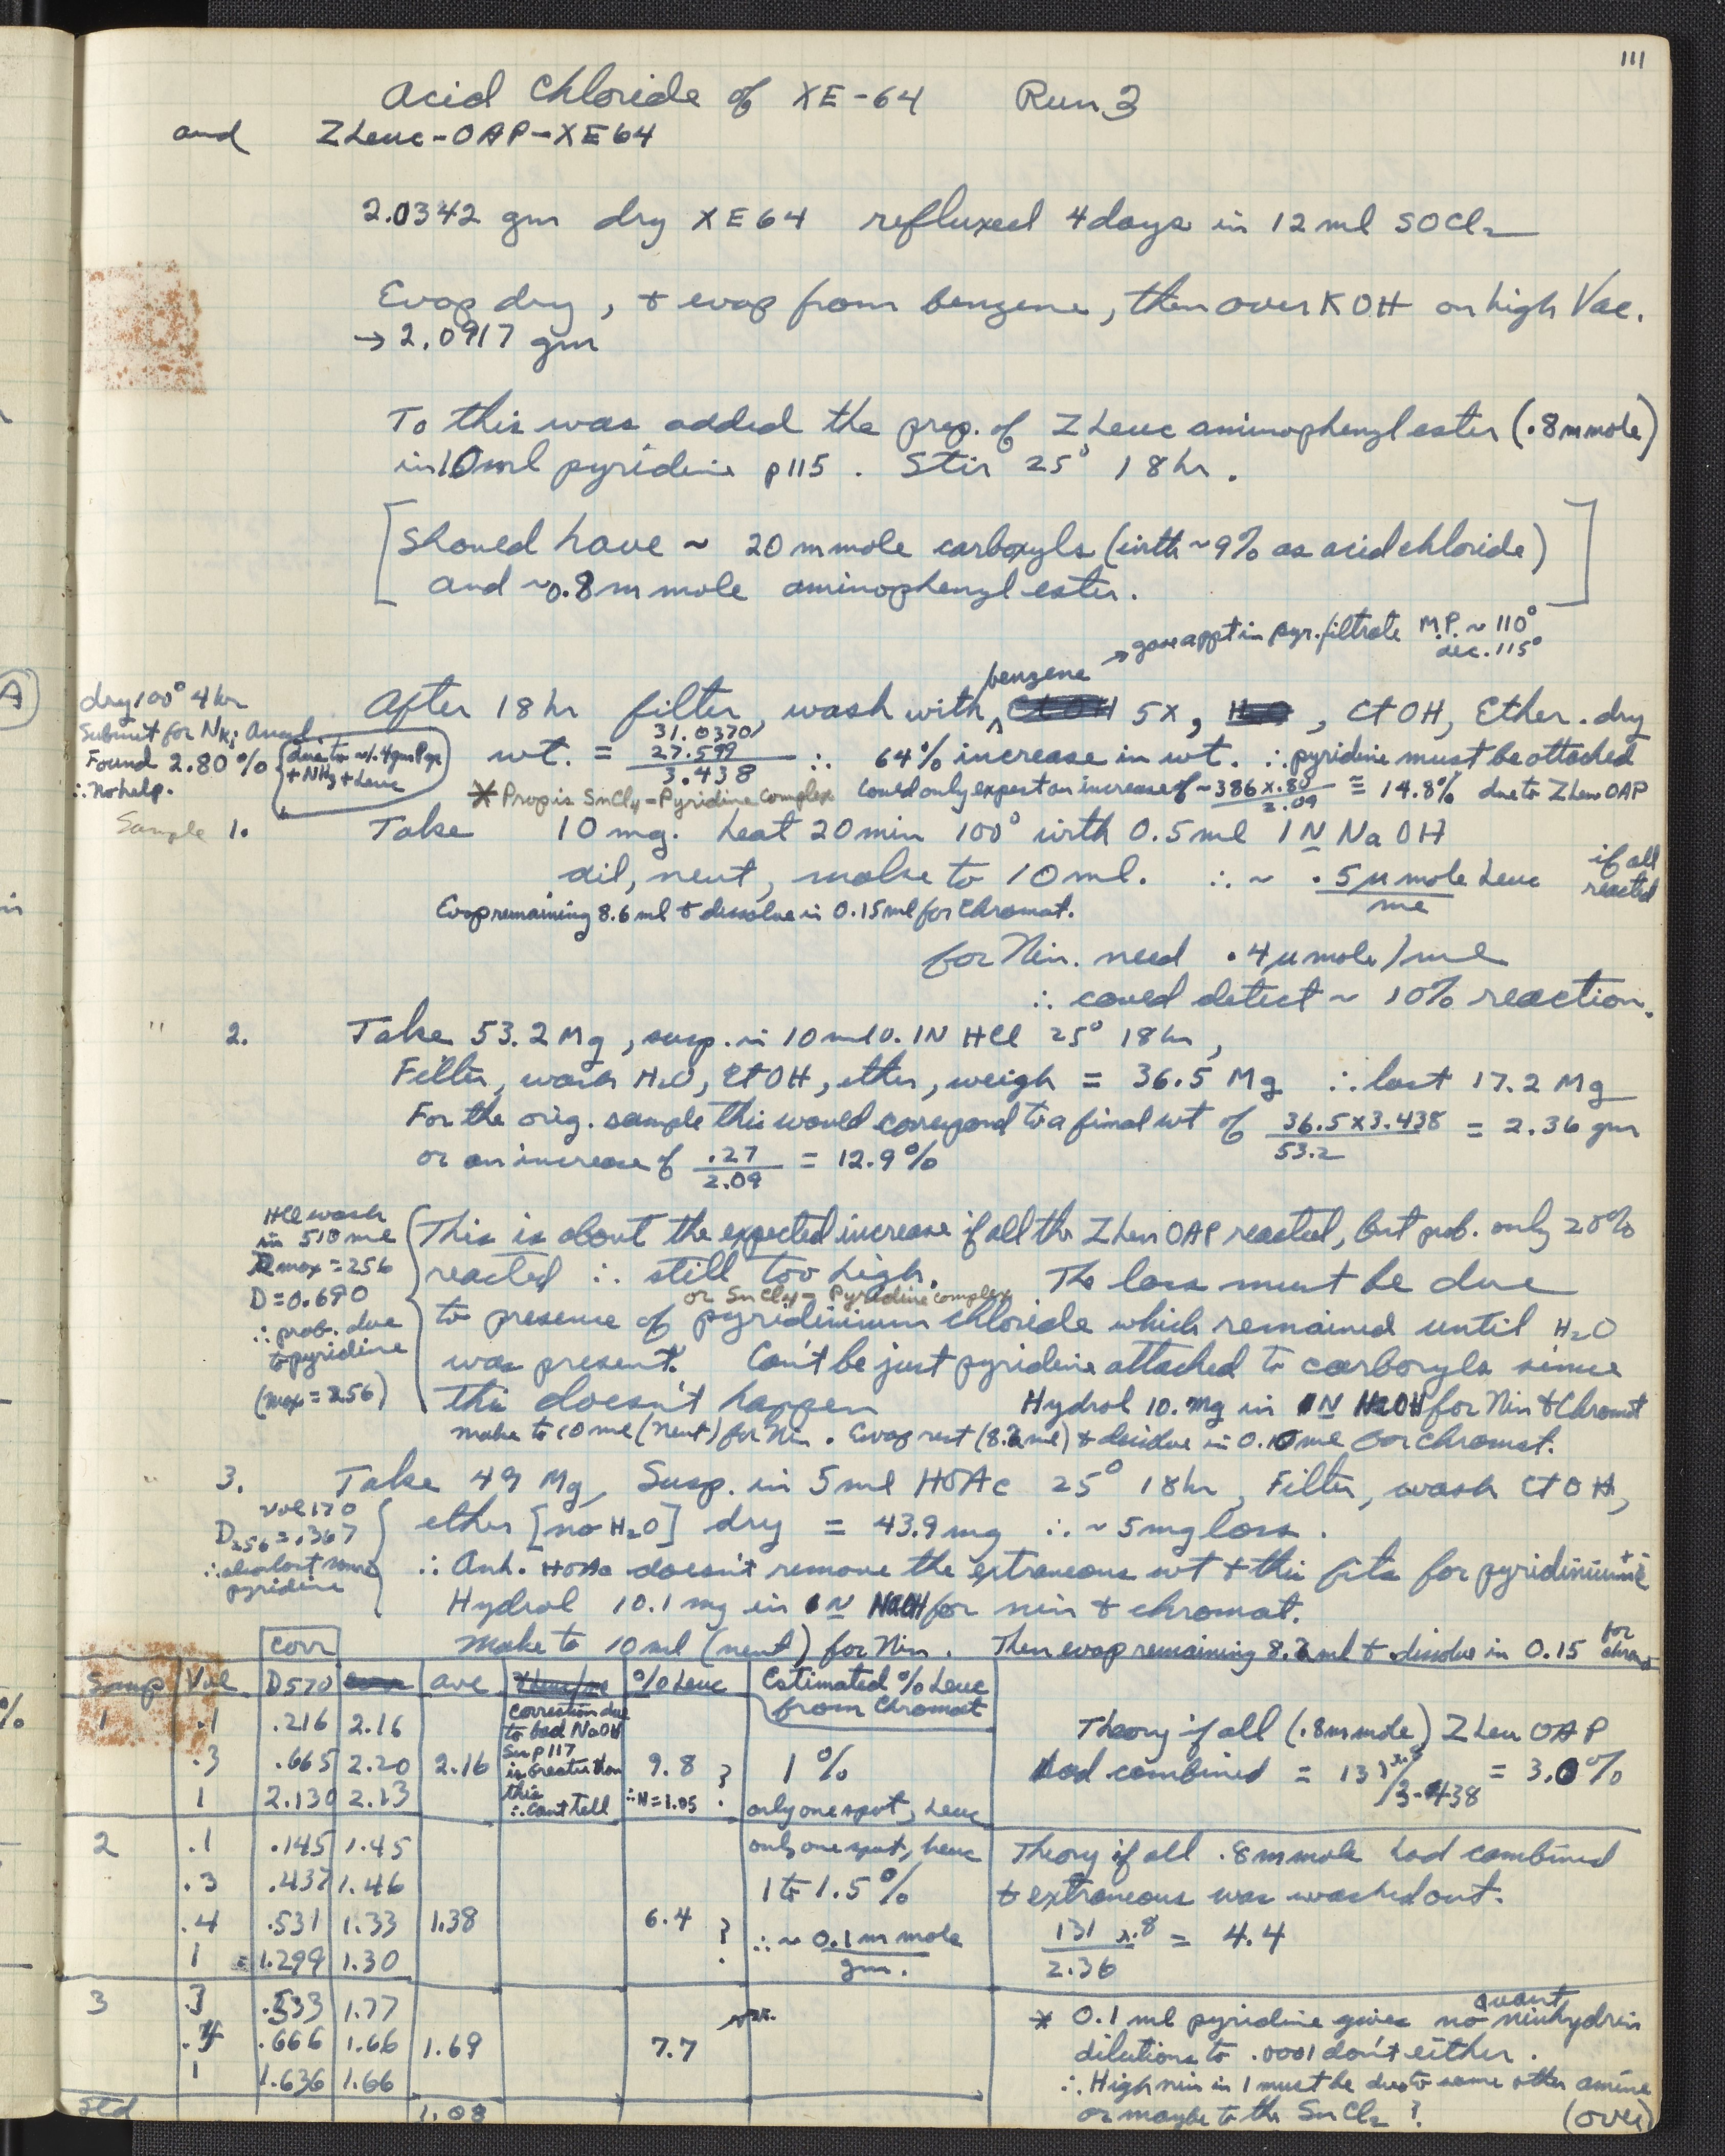 111
Acid Chloride of XE-64 Run 3
and ZLeuc-OAP-XE64
2.0342 gm dry XE64 refluxed 4 days in 12 ml SOCl₂
Evap dry, & evap from benzene, then over KOH on high Vac.
→ 2.0917 gm
To this was added the prep. of ZLeuc aminophenyl ester (.8 mmole)
in 10 ml pyridine p115. Stir 25° 18 hr.
[Should have ~ 20 mmole carboxyls (with ~9% as acid chloride)
and ~0.8 mmole aminophenyl ester.]
→ gave a ppt in pyr. filtrate M.P. ~ 110°
dec. 115°
benzene
After 18 hr filter, wash with EtOH 5x, H₂O, EtOH, Ether. dry
dry 100° 4 hr
Submit for NKj Anal.
Found 2.80%
∴ No help.
due to ~1.4 gm Pyr
+ NH₃ + Leuc
wt. = 31.0370 / 27.599 / 3.438 ∴ 64% increase in wt. ∴ pyridine must be attached
* Prop is SnCl₄-Pyridine Complex
Could only expect an increase of ~ 386 x .80 / 2.09 = 14.8% due to ZLeuOAP
Sample 1. Take 10 mg. heat 20 min 100° with 0.5 ml 1N NaOH
dil, neut, make to 10 ml. ∴ ~ .5 µ mole Leuc / ml if all reacted
Evap remaining 8.6 ml & dissolve in 0.15 ml for Chromat.
for Nin. need .4 µ mole/ml
∴ could detect ~ 10% reaction.
" 2. Take 53.2 Mg, susp. in 10 ml 0.1N HCl 25° 18 hr,
Filter, wash H₂O, EtOH, ether, weigh = 36.5 Mg ∴ lost 17.2 Mg
For the orig. sample this would correspond to a final wt of 36.5 x 3.438 / 53.2 = 2.36 gm
or an increase of .27 / 2.09 = 12.9%
HCl wash
in 510 ml
max = 256
D = 0.690
∴ prob. due
to pyridine
(max = 256)
This is about the expected increase if all the ZLeu OAP reacted, but prob. only 20%
reacted ∴ still too high. The loss must be due
or SnCl₄-Pyridine complex
to presence of pyridinium chloride which remained until H₂O
was present. Can't be just pyridine attached to carboxyls since
this doesn't happen
Hydrol 10. mg in 1N NaOH for Nin & Chromat
make to 10 ml (neut) for Nin. Evap rest (8.2 ml) & dissolve in 0.10 ml for chromat.
" 3. Take 49 Mg, Susp. in 5 ml HOAc 25° 18 hr, Filter, wash EtOH,
Vol 170
D256 = .367
∴ also lost some
pyridine
ether [no H₂O] dry = 43.9 mg ∴ ~ 5 mg loss.
∴ Anh. HOAc doesn't remove the extraneous wt & this fits for pyridinium
Hydrol 10.1 mg in 1N NaOH for nin & chromat.
Make to 10 ml (neut) for Nin. Then evap remaining 8.2 ml & dissolve in 0.15 for chrom
Corr
Samp Vol D570 ave % Leuc Estimated % Leuc
from Chromat
1 .1 .216 2.16
.3 .665 2.20 2.16 9.8 ? 1%
1 2.130 2.13 ∴ N = 1.05 only one spot, Leuc
correction due
to bad NaOH
See p 117
is greater than
this
∴ Can't tell
Theory if all (.8 mmole) ZLeu OAP
had combined = 131 x .8 / 3.438 = 3.0%
2 .1 .145 1.45 only one spot, Leuc
.3 .437 1.46 1 to 1.5%
.4 .531 1.33 1.38 6.4 ? ∴ ~ 0.1 m mole / gm.
1 1.299 1.30
Theory if all .8 mmole had combined
& extraneous was washed out.
131 x .8 / 2.36 = 4.4
3 .3 .533 1.77
.4 .666 1.66 1.69 7.7
1 1.636 1.66
Std 1.08
* 0.1 ml pyridine gives no quant ninhydrin
dilutions to .0001 don't either.
∴ High nin in 1 must be due to some other amine
or maybe to the SnCl₂ ? (over)